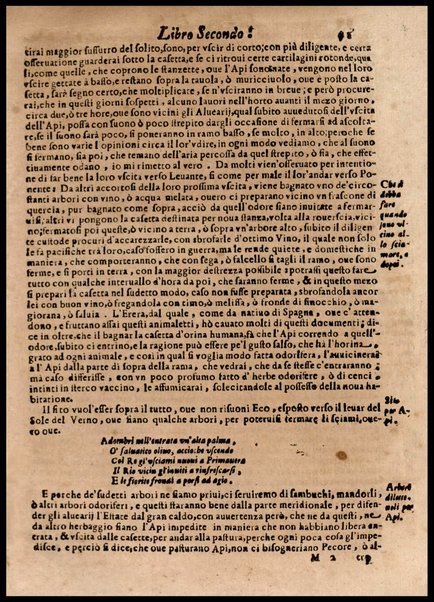 Libro Secondo.
tirai maggior sussurro del solito, sono, per vscir di corto; con più diligente, e certa
osseruatione guarderai sotto la casetta, e se ci ritroui certe cartilagini rotonde, qua
li, come quelle, che coprono le stanzette, oue l'Api sono nate, vengono nel loro
vscire gettate à basso, e restano sopra la tauola, ò muricciuolo, oue è posto la ca-
setta, sarà segno certo, che moltiplicate, se n'vsciranno in breue; e però procure-
rai, che in questi giorni sospetti, alcuno lauori nell'horto auanti il mezo giorno,
circa due, ò tre hore, oue sono vicini gli Alueari, qual subito auuedutosi dell'vscita
dell'Api, possa con suono ò poco strepito dargli occasione di fermarsi ad ascoltar-
se, se il suono sarà poco, si poneranno in ramo basso, se molto, in alto; perochè se
bene sono varie l'opinioni circa il lor'vdire, in ogni modo vediamo, che al suono
si fermano, sia poi, che temano dell'aria percossa da quel strepito, ò sia, che effet-
tiuamente odano, io mi rimetto al vero. Da molti vien'offeruato per intentio-
ne di far bene la loro vscita verso Leuante, si come per male il lor'andar verso Po-
nente. Da altri accortosi della loro prossima vscita, viene bagnato vno de'circo-
stanti arbori con vino, ò acqua melata, ouero ci preparano vicino vn frascone di
quercia, pur bagnato come sopra, acciò da quell'odore siano inuitate a fermar-
uisi; altri vi pongono la casetta destinata per noua stanza, volta alla rouerscia, vici-
no; fermatosi poi queste, ò vicino a terra, ò sopra vn'arbore alto, subito il diligen-
te custode procuri d'accarezzarle, con sbrofarle d'ottimo Vino, il quale non solo
le fa pacifiche tra loro, caso fossero in guerra, ma le rende quiete, e domestiche in
maniera, che comporteranno, che con sega, ò falcello si tagli il ramo, oue sono
ferme, e si porti in terra, con la maggior destrezza possibile potrassi questo fare
tutto con qualche interuallo d'hora da poi, che saranno ferme, & in questo mezo
si prepari la casetta nel sudetto modo, caso non fusse preparata, sbrofandola anco-
lei con buon vino, ò fregandola con timo, ò melissa, ò fronde di finocchio, ò ma-
giorana, ò saluia. L'Erera, dal quale, come da natiuo di Spagna, oue s'atten-
dono, e fruttano assai questi animaletti, hò cauato molti di questi documenti; di-
ce in oltre, che il bagnar la casetta d'orina humana, fà che l'Api correndo a quell'-
odore, subito ci entrino, e la ragione può essere per'l gusto salso, che hà l'horina
grato ad ogni animale, e così in qual si voglia modo fatta odorifera, l'auuicinerai
a l'Api dalla parte di sopra della rama, che vedrai, che da se stesse c'entraranno
ma caso differisse, con vn poco profumo fatto d'herbe odorifere, ò di cenci
intinti in sterco vaccino, le affumicarai, solecitandole al possesso della noua ha-
bitatione.
Il sito vuol'esser sopra il tutto, oue non risuoni Eco, esposto verso il leuar del
Sole del Verno, oue siano qualche arbori, per poteruisi fermare li sciami, oue-
ro oue.
Adombri nell'entrata vn'alta palma,
O' saluatico oliuo, acciochè vscendo
Col Re gl'vsciami nuoui a Primauera
Il Rio vicin gli inuiti a rinfrescarsi,
E le fiorite frondi a porsi ad agio.
E perche de'sudetti arbori ne siamo priui, ci seruiremo di sambuchi, mandorli,
ò altri arbori odoriferi, e questi staranno bene dalla parte meridionale, per difen-
der gli aluearij l'Estate dal gran caldo, con auuertenza però, che da questi, ne
da altro herbaggio siano l'Api impedite in maniera che non habbiano libera an-
erata, & vscita dalle casette, per andar alla pastura, perche ogni poca cosa gl'impe-
disce, e perciò si dice, che oue pasturano Api, non ci bisogneriano Pecore, ò al-
M 2
Che si
debba
fare
quando
sono vi-
cino al-
lo scia-
mare, e
dopoi.
Sito
per A-
pi.
Arbori
diletteuoli per
Api.